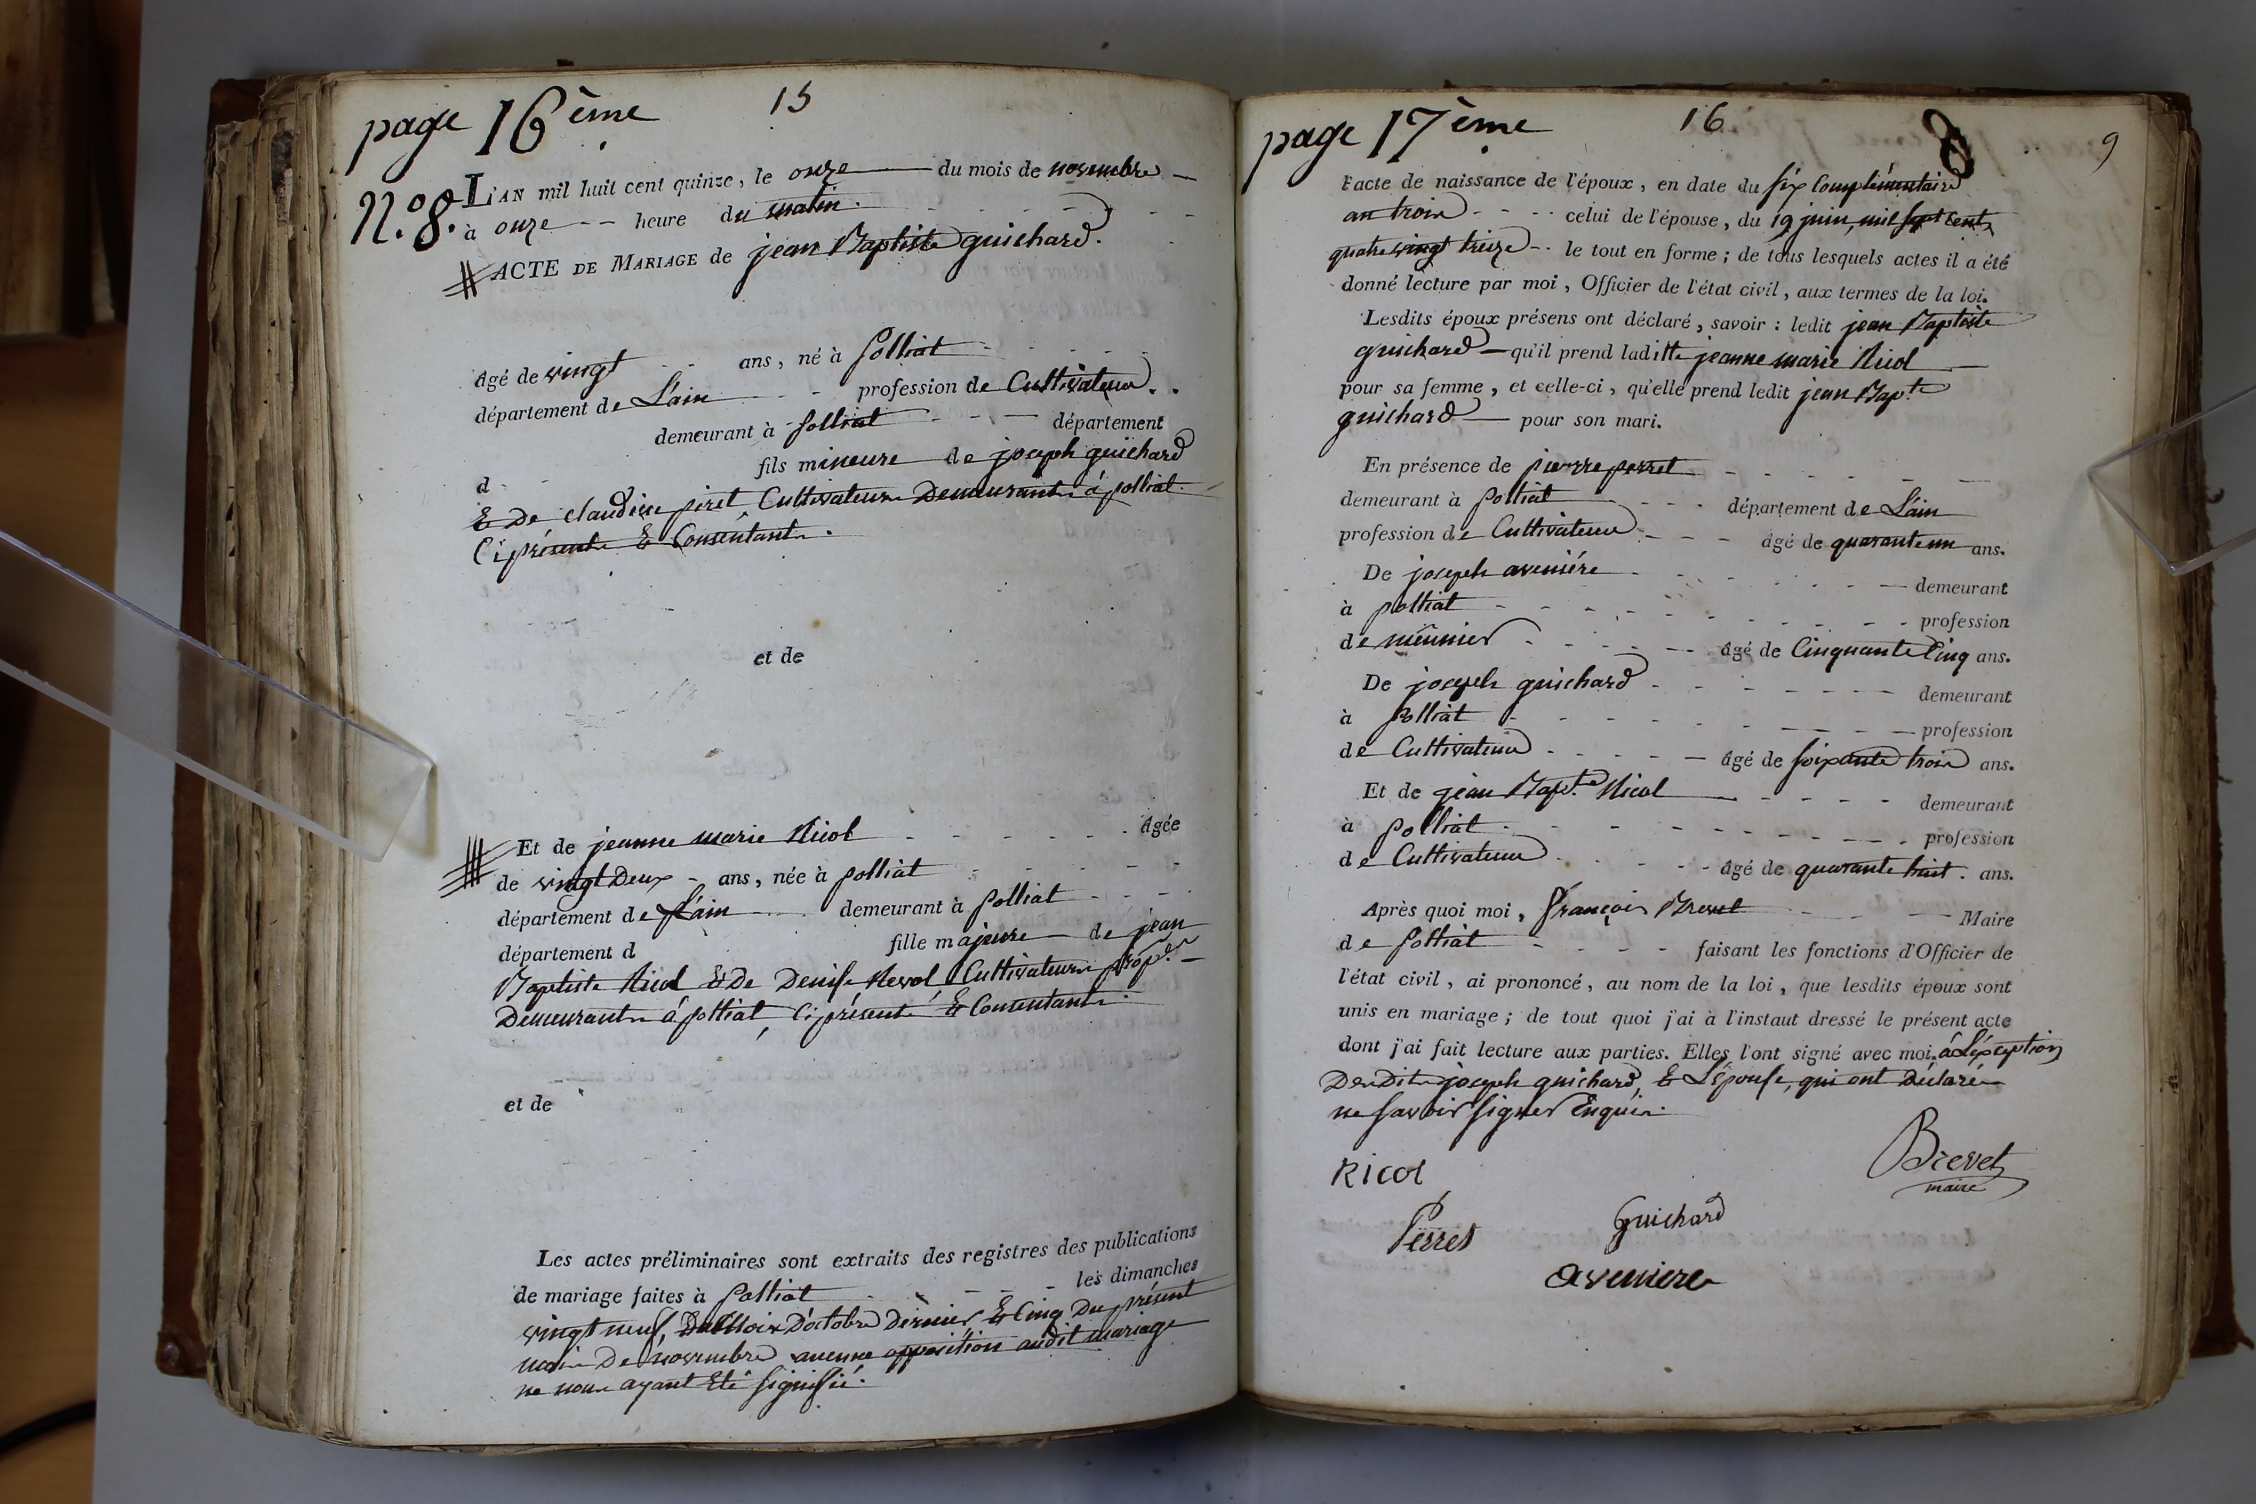 page 16ème 15
N.º 8. L'AN mil huit cent quinze, le onze du mois de novembre
à onze heure du matin.
ACTE DE MARIAGE de jean Baptiste guichard.
âgé de vingt ans, né à polliat
département de L'ain profession de Cultivateur.
demeurant à polliat département
d fils mineure de joseph guichard
& De claudine piret, Cultivateurs Demeurants à polliat
Ci présents & Consentants.
et de
Et de jeanne marie Nicol âgée
de vingt Deux ans, née à polliat
département de L'ain demeurant à polliat
département d fille majeure de jean
Baptiste Nicol & De Denise Revol Cultivateurs prop.rs
Demeurants à polliat, Ci présents & Consentants.
et de
Les actes préliminaires sont extraits des registres des publications
de mariage faites à Polliat les dimanches
vingt neuf, Du Mois D'octobre Dernier & Cinq Du présent
mois De novembre aucune opposition audit mariage
ne nous ayant Eté signifié.
page 17ème 16 8 9
l'acte de naissance de l'époux, en date du six Complémentaire
an trois celui de l'épouse, du 19 juin, mil sept cent
quatre vingt treize le tout en forme; de tous lesquels actes il a été
donné lecture par moi, Officier de l'état civil, aux termes de la loi.
Lesdits époux présens ont déclaré, savoir: ledit jean Baptiste
guichard qu'il prend laditte jeanne marie Nicol
pour sa femme, et celle-ci, qu'elle prend ledit jean Bap.te
guichard pour son mari.
En présence de pierre perret
demeurant à polliat département de L'ain
profession de Cultivateur âgé de quarante un ans.
De joseph aveniére demeurant
à polliat profession
de meunier âgé de Cinquante Cinq ans.
De joseph guichard demeurant
à polliat profession
de Cultivateur âgé de soixante trois ans.
Et de jean Bap.te Nicol demeurant
à polliat profession
de Cultivateur âgé de quarante huit. ans.
Après quoi moi, françois Brevet Maire
de polliat faisant les fonctions d'Officier de
l'état civil, ai prononcé, au nom de la loi, que lesdits époux sont
unis en mariage; de tout quoi j'ai à l'instaut dressé le présent acte
dont j'ai fait lecture aux parties. Elles l'ont signé avec moi. à L'éxception
Des Dits joseph guichard, & L'épouse, qui ont Déclarés
ne savoir signer Enquis.
Nicol
Brevet
maire
Perret
Guichard
aveniere